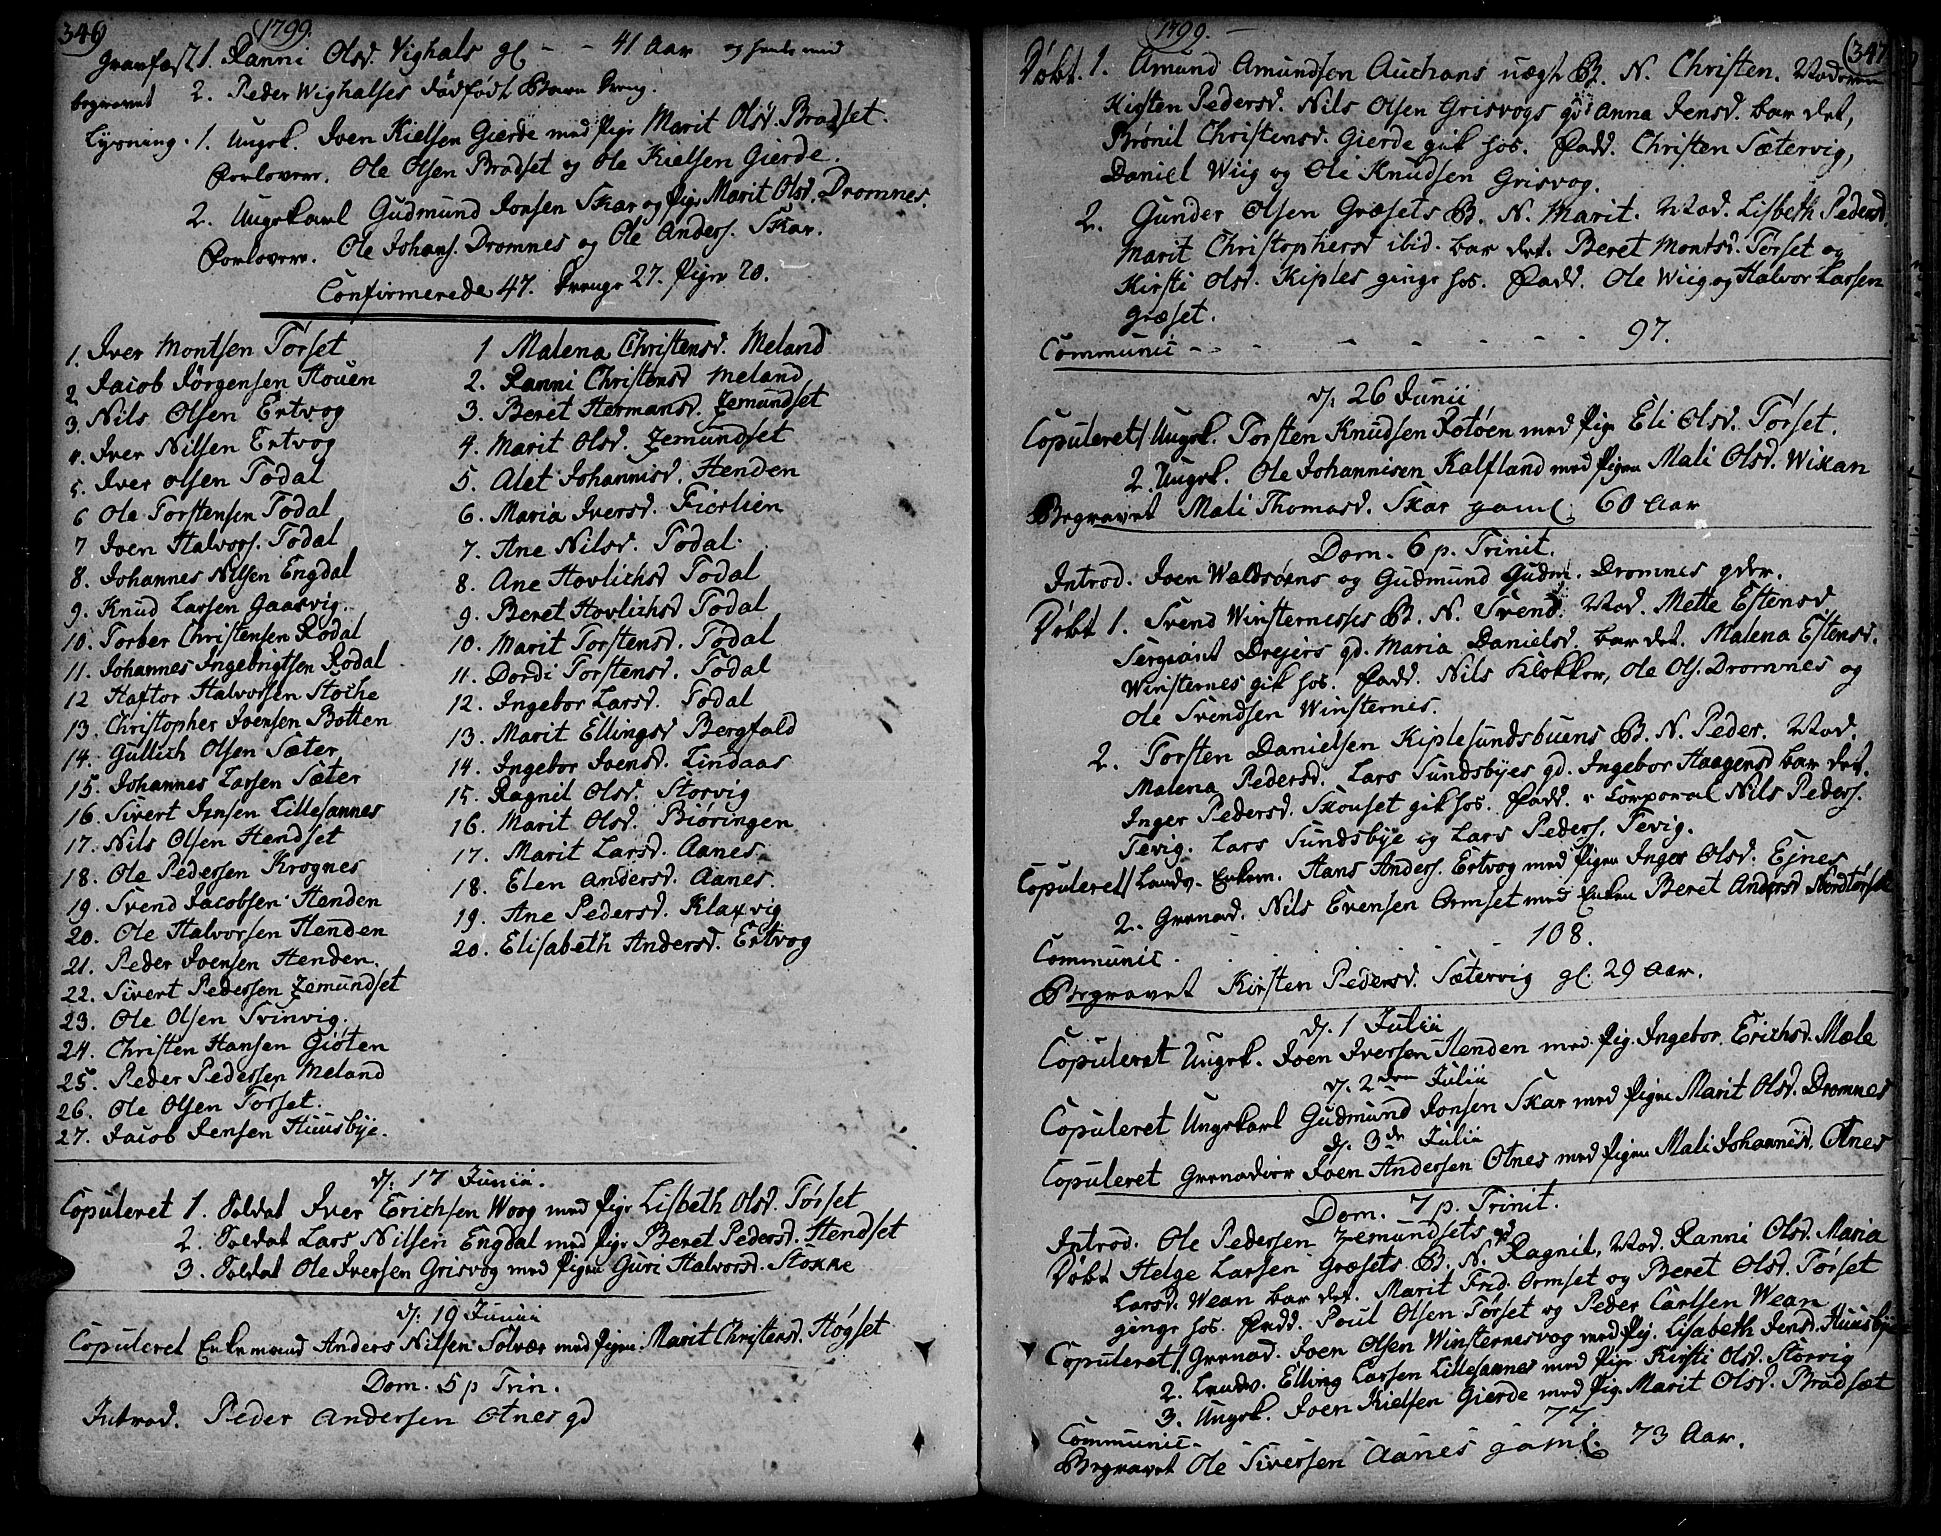 346
1799.
Gravfæst 1. Ranni Olsd. Vighals gl - - 41 Aar og hendes med
begravet 2. Peder Wighalses dødfødt Barn Dreng.
Lysning. 1. Ungk. Joen Kielsen Gierde med Pige Marit Olsd. Bradset
Forlovere. Ole Olsen Bradset og Ole Kielsen Gierde.
2. Ungekarl Gudmund Jonsen Skar og Pige Marit Olsd. Dromnes.
Forlovere. Ole Johans. Dromnes og Ole Anders. Skar.
Confirmerede 47. Drenge 27. Piger 20.
1. Iver Montsen Torset
2 Jacob Jörgensen Houen
3. Nils Olsen Ertvog
4. Iver Nilsen Ertvog
5. Iver olsen Todal
6 Ole Torstensen Todal
7 Joen Halvors. Todal
8. Johannes Nilsen Engdal
9. Knud Larsen Gaasvig.
10. Torber Christensen Rodal
11. Johannes Ingebrigtsen Rodal
12 Haftor Halvorsen Stoche
13. Christopher Joensen Botten
14. Gullich Olsen Sæter
15. Johannes Larsen Sæter
16. Sivert Jensen Lillesannes
17. Nils Olsen Hendset
18. Ole Pedersen Krognes
19. Svend Jacobsen Henden
20. Ole Halvorsen Henden
21. Peder Joensen Henden.
22. Sivert Pedersen Zemundset
23. Ole Olsen Svinvig.
24. Christen Hansen Giøten
25. Peder Pedersen Meland
26. Ole Olsen Torset.
27. Jacob Jensen Huusbye.
1 Malena Christensd. Meland
2. Ranni Christensd Meland
3. Beret Hermansd. Zemundset
4. Marit Olsd. Zemundset
5. Alet Johannisd. Henden
6. Maria Iversd. Fiorlien
7. Ane Nilsd. Todal.
8. Ane Hovlichsd Todal
9. Beret Hovlichsd Todal
10. Marit Torstensd. Todal
11. Dordi Torstensd. Todal
12. Ingebor Larsd. Todal
13. Marit Ellingsd Bergfald
14. Ingebor Joensd. Lindaas
15. Ragnil Olsd. Storvig
16. Marit Olsd. Biøringen
17. Marit Larsd. Aanes
18. Elen Andersd. Aanes.
19. Ane Pedersd. Klaxvig
20. Elisabeth Andersd. Ertvog
d. 17 Junii.
Copuleret 1. Soldat Iver Erichsen Woog med Pige Lisbeth Olsd. Torset
2. Soldat Lars Nilsen Engdal med Pige Beret Pedersd. Hendset
3. Soldat Ole Iversen Grisvog med Pigen Guri Halvorsd. Stokke
d. 19 Junii
Copuleret Enkemand Anders Nilsen Solvær med Pigen Marit Christensd. Høgset
Dom. 5 p Trin.
Introd. Peder Andersen Otnes qd
1799. -
347
Døbt. 1. Amund Amundsen Auchans uægt B. N. Christen. Moderen
Kisten Pedersd. Nils Olsen Grisvogs qd Anna Jensd. bar det,
Brønil Christensd. Gierde gik hos. Fadd. Christen Sætervig,
Daniel Wiig og Ole Knudsen Grisvog.
2. Gunder Olsen Græsets B. N. Marit. Mod. Lisbeth Pedersd
Marit Christophersd ibid. bar det. Beret Montsd. Torset og
Kirsti Olsd. Kiples ginge hos. Fadd. Ole Wiig og Halvor Larsen
Græset.
Communic - - - - - - - - 97.
d. 26 Junii
Copuleret 1 Ungk. Torsten Knudsen Rotøen med Pige Eli Olsd. Torset.
2. Ungk. Ole Johannisen Kalfland med Pigen Mali Olsd. Wikan
Begravet Mali Thomasd. Skar gaml. 60 Aar
Dom. 6 p. Trinit.
Introd. Joen Waldsøens og Gudmund Gudm. Dromnes qder.
Døbt 1. Svend Winsternesses B. N. Svend. Mod. Mette Estensd
Sergeant Drejers qd. Maria Danielsd. bar det. Malena Estensd.
Winsternes gik hos. Fadd. Nils Klokker, Ole Ols. Dromnes og
Ole Svendsen Winsternes.
2. Torsten Danielsen Kiplesundsbuens B. N. Peder. Mod.
Malena Pedersd. Lars Sundsbyes qd. Ingebor Haagensd bar det.
Inger Pedersd. Skouset gik hos. Fadd. Corporal Nils Peders.
Tevig. Lars Sundsbye og Lars Peders. Tevig.
Copuleret 1 Landv. Enkem. Hans Anders. Ertvog med Pigen Inger Olsd. Ejnes
2. Grenad. Nils Evensen Ormset med Enken Beret Andersd Nordtorset
Communic. 108.
Begravet Kirsten Pedersd. Sætervig gl. 29 Aar.
d. 1 Julii
Copuleret Ungk. Joen Iversen Henden med Pig. Ingebor Erichsd. Mæle
d. 2den Julii
Copuleret Ungekarl Gudmund Jonsen Skar med Pigen Marit Olsd. Dromnes
d. 3de Julii
Copuleret Grenadier Joen Andersen Otnes med Pigen Mali Johannisd. Otnes
Dom. 7 p. Trinit.
Introd. Ole Pedersen Zemundsets qd
Døbt Helge Larsen Græsets B. N. Ragnil, Mod. Ranni Olsd. Maria
Larsd. Wean bar det. Marit Frid. Ormset og Beret Olsd. Torset
ginge hos. Fadd. Poul Olsen Torset og Peder Carlsen Wean
Copuleret 1 Grenad. Joen Olsen Winsternesvog med Pig. Lisabeth Jensd. Huusbye
2. Landv. Elling Larsen Lillesannes med Pige Kirsti Olsd. Storvig
3. Ungk. Joen Kielsen Gierde med Pig. Marit Olsd. Bradset
Communic. 77
Begravet Ole Siversen Aanes gaml. 73 Aar.